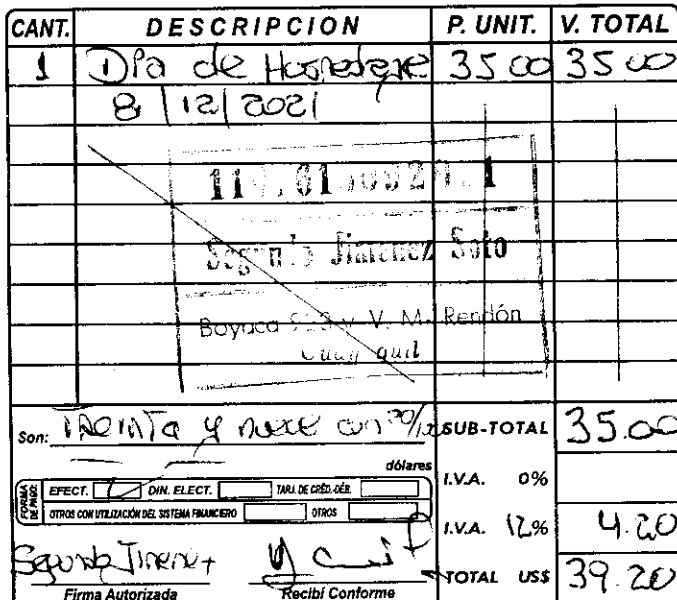 CANT. DESCRIPCION P. UNIT. V. TOTAL
1 Día de Hospedaje 35 00 35 00
8 | 12 | 2021
Segundo Jimenez Soto
Boyaca V. M. Rendón
Guayaquil
Son: Treinta y nueve con 20/100 SUB-TOTAL 35.00
dólares
FORMA DE PAGO: EFECT. DIN. ELECT. TARJ. DE CRÉD.-DÉB. I.V.A. 0%
OTROS CON UTILIZACIÓN DEL SISTEMA FINANCIERO OTROS
I.V.A. 12% 4.20
Segundo Jimenez
Firma Autorizada Recibí Conforme TOTAL US$ 39.20